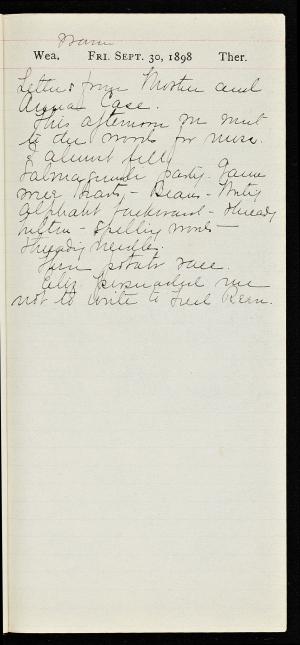 Warm
Wea. FRI. SEPT. 30, 1898 Ther.
Letters from Mother and
Anna Case.
This afternoon we went
to the woods for moss.
& almost fell
Salmagundi party. Games
were Hearts - Beans - Writing
alphabet backward - thready
- spelling words -
Threading needles.
potato race.
persuaded me
not to write to Fred Bean.